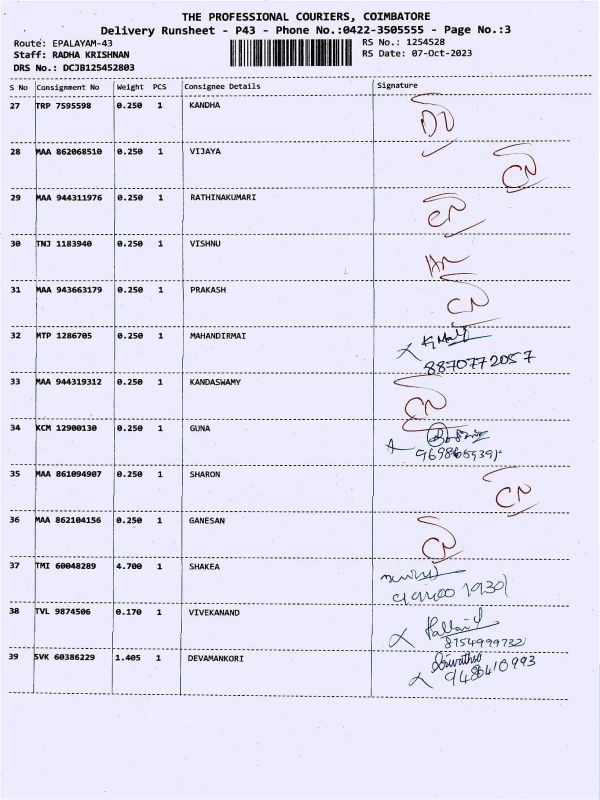 THE PROFESSIONAL COURIERS, COIMBATORE
Delivery Runsheet - P43 - Phone No.:0422-3505555 - Page No.:3
Route: EPALAYAM-43 RS No.: 1254528
Staff: RADHA KRISHNAN RS Date: 07-Oct-2023
DRS No.: DCJB125452803
S No Consignment No Weight PCS Consignee Details Signature
27 TRP 7595598 0.250 1 KANDHA
28 MAA 862068510 0.250 1 VIJAYA CN
29 MAA 944311976 0.250 1 RATHINAKUMARI CN
30 TNJ 1183940 0.250 1 VISHNU
31 MAA 943663179 0.250 1 PRAKASH CN
32 MTP 1286705 0.250 1 MAHANDIRMAI
8870772057
33 MAA 944319312 0.250 1 KANDASWAMY CN
34 KCM 12900130 0.250 1 GUNA
35 MAA 861094907 0.250 1 SHARON CN
36 MAA 862104156 0.250 1 GANESAN CN
37 TMI 60048289 4.700 1 SHAKEA
38 TVL 9874506 0.170 1 VIVEKANAND
8754999732
39 SVK 60386229 1.405 1 DEVAMANKORI
9486410993